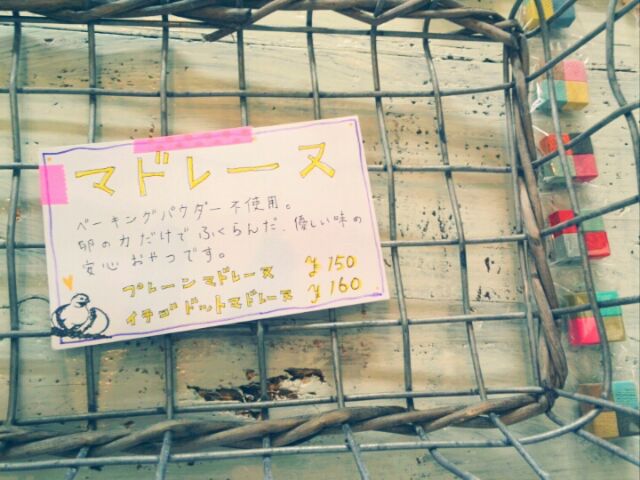 マドレーヌ
ベーキングパウダー不使用。
卵の力だけでふくらんだ、優しい味の
安心おやつです。
プレーンマドレーヌ ¥150
イチゴドットマドレーヌ ¥160